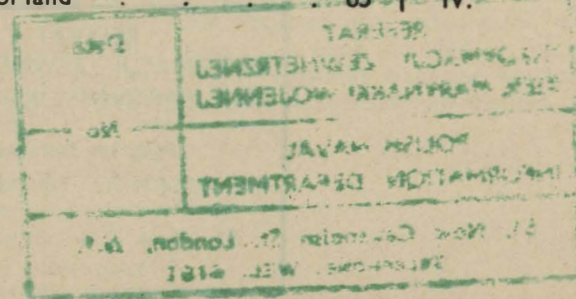 REFERAT
INFORMACJI ZEWNETRZNEJ
MARYNARKI WOJENNEJ
Date
POLISH NAVAL
INFORMATION DEPARTMENT
No
New Cavendish St., London,
TELEPHONE: WEL.